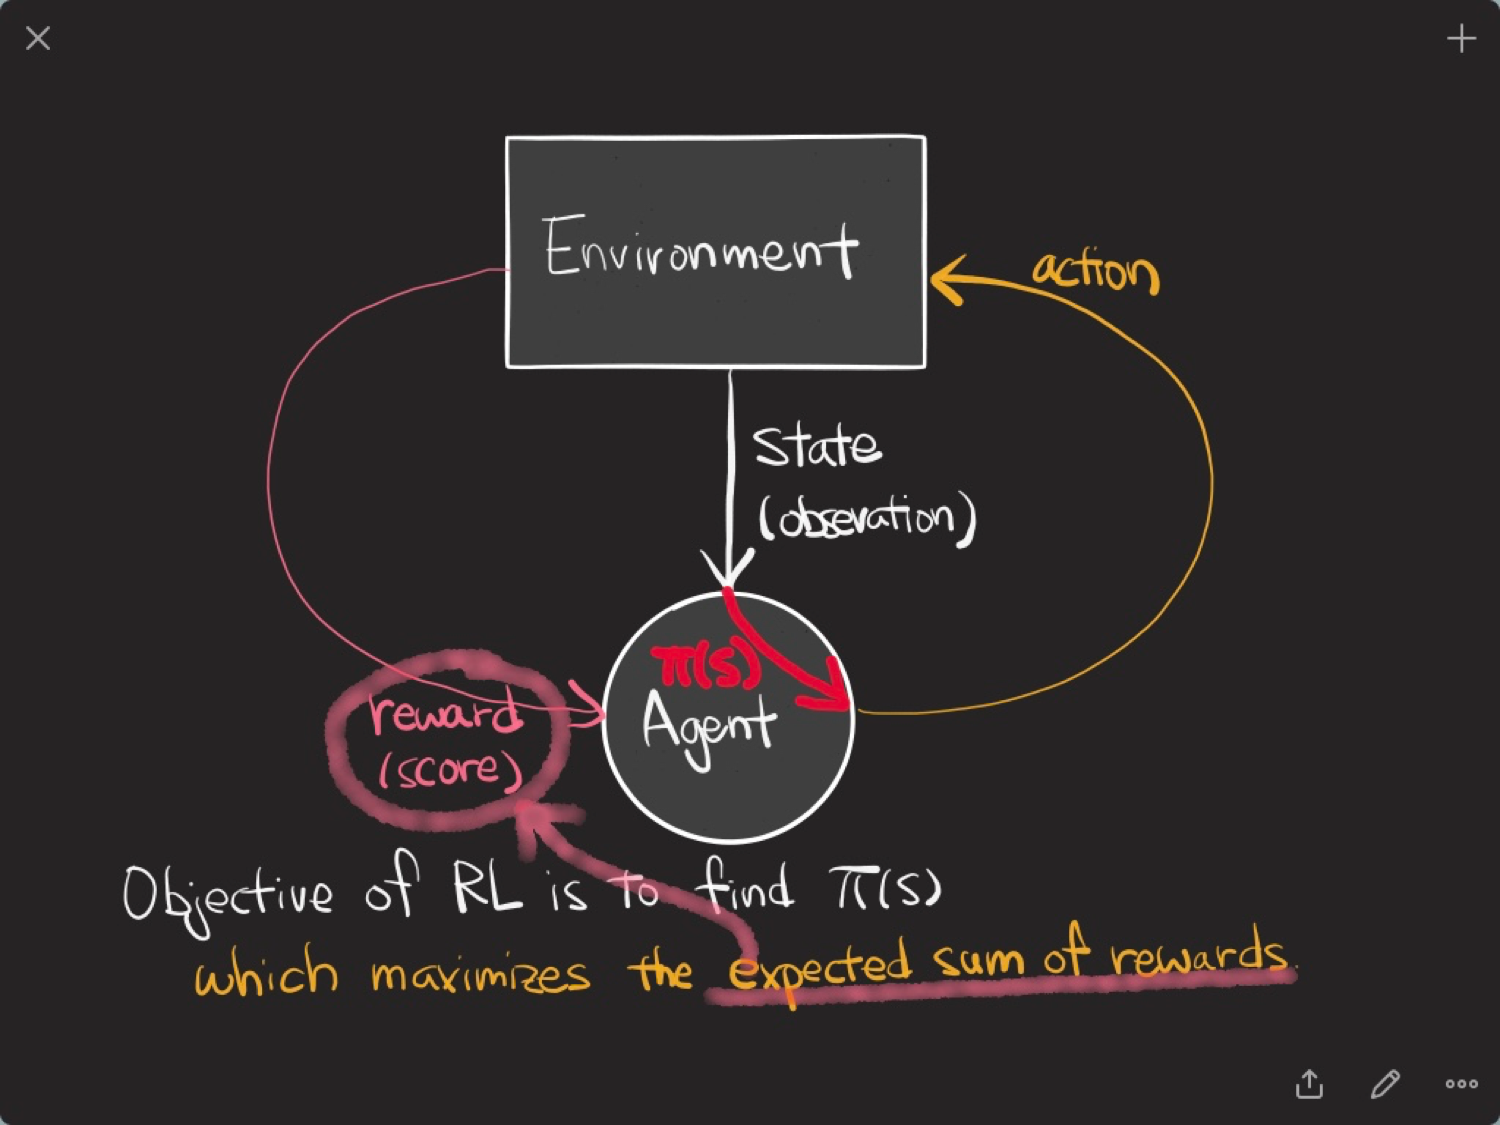 Environment
action
State
(obsevation)
π(s)
Agent
reward
(score)
Objective of RL is to find π(s)
which maximizes the expected sum of rewards.